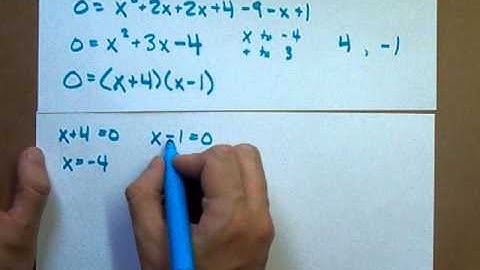 0 = x² + 2x + 2x + 4 - 9 - x + 1
0 = x² + 3x - 4 x to -4 4 , -1
+ to 3
0 = (x+4)(x-1)
x+4=0 x-1=0
x=-4